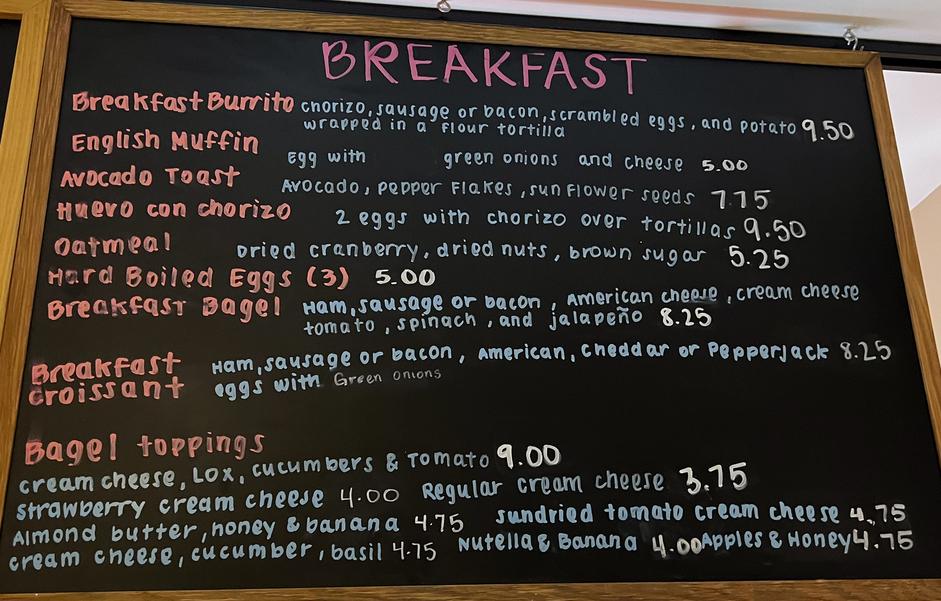 BREAKFAST
Breakfast Burrito chorizo, sausage or bacon, scrambled eggs, and potato 9.50
wrapped in a flour tortilla
English Muffin Egg with green onions and cheese 5.00
Avocado Toast Avocado, pepper Flakes, sunflower seeds 7.75
Huevo con chorizo 2 eggs with chorizo over tortillas 9.50
Oatmeal Dried cranberry, dried nuts, brown sugar 5.25
Hard Boiled Eggs (3) 5.00
Breakfast Bagel Ham, sausage or bacon, American cheese, cream cheese
tomato, spinach, and jalapeño 8.25
Breakfast Ham, sausage or bacon, American, Cheddar or Pepperjack 8.25
croissant eggs with Green onions
Bagel toppings
cream cheese, Lox, cucumbers & Tomato 9.00
strawberry cream cheese 4.00 Regular cream cheese 3.75
Almond butter, honey & banana 4.75 sundried tomato cream cheese 4.75
cream cheese, cucumber, basil 4.75 Nutella & Banana 4.00 Apples & Honey 4.75